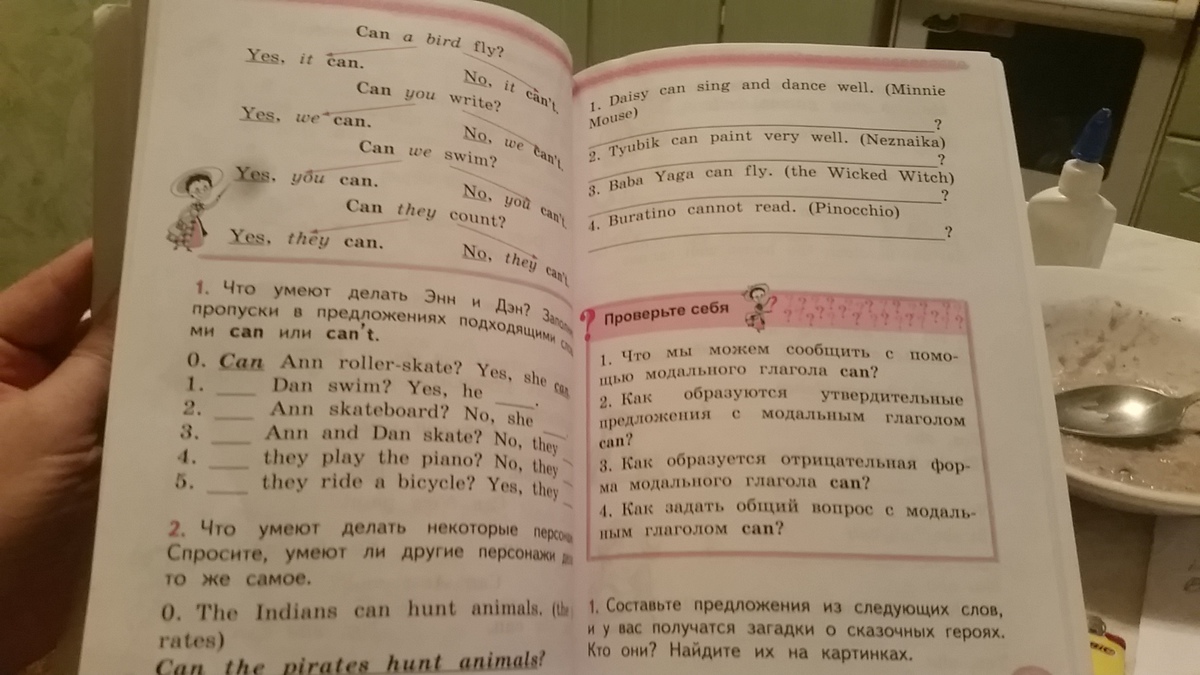 Can a bird fly?
Yes, it can.
No, it can't.
Can you write?
Yes, we can.
No, we can't.
Can we swim?
Yes, you can.
No, you can't.
Can they count?
Yes, they can.
No, they can't.
1. Что умеют делать Энн и Дэн?
пропуски в предложениях подходящими
ми can или can't.
0. Can Ann roller-skate? Yes, she can
1. ____ Dan swim? Yes, he ____.
2. ____ Ann skateboard? No, she ____.
3. ____ Ann and Dan skate? No, they
4. ____ they play the piano? No, they
5. ____ they ride a bicycle? Yes, they
2. Что умеют делать некоторые
Спросите, умеют ли другие персонажи
то же самое.
0. The Indians can hunt animals.
rates)
Can the pirates hunt animals?
1. Daisy can sing and dance well. (Minnie
Mouse)
?
2. Tyubik can paint very well. (Neznaika)
?
3. Baba Yaga can fly. (the Wicked Witch)
?
4. Buratino cannot read. (Pinocchio)
?
? Проверьте себя
1. Что мы можем сообщить с помо-
щью модального глагола can?
2. Как образуются утвердительные
предложения с модальным глаголом
can?
3. Как образуется отрицательная фор-
ма модального глагола can?
4. Как задать общий вопрос с модаль-
ным глаголом can?
1. Составьте предложения из следующих слов,
и у вас получатся загадки о сказочных героях.
Кто они? Найдите их на картинках.